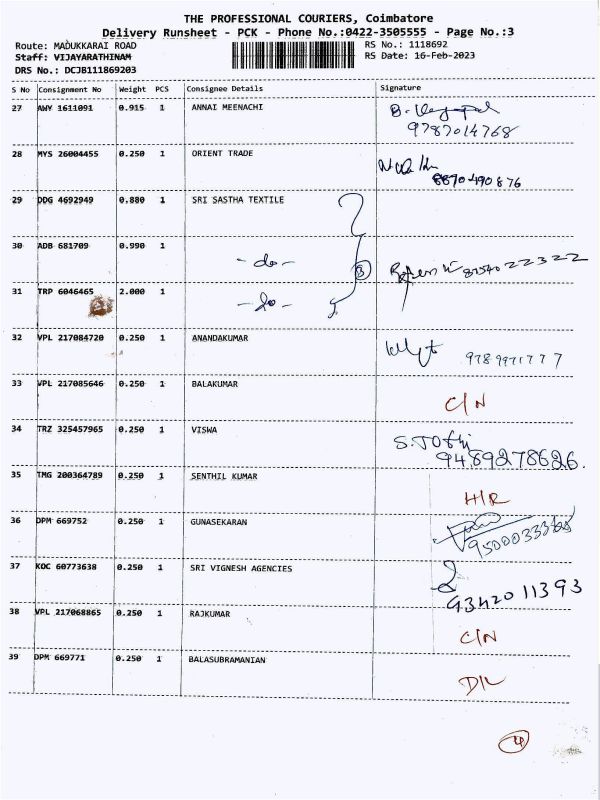 THE PROFESSIONAL COURIERS, Coimbatore
Delivery Runsheet - PCK - Phone No.:0422-3505555 - Page No.:3
Route: MADUKKARAI ROAD RS No.: 1118692
Staff: VIJAYARATHINAM RS Date: 16-Feb-2023
DRS No.: DCJB111869203
S No Consignment No Weight PCS Consignee Details Signature
27 AWY 1611091 0.915 1 ANNAI MEENACHI
9787014768
28 MYS 26004455 0.250 1 ORIENT TRADE
8870490876
29 DDG 4692949 0.880 1 SRI SASTHA TEXTILE
30 ADB 681709 0.990 1 -do- 3
31 TRP 6046465 2.000 1 -do-
32 VPL 217084720 0.250 1 ANANDAKUMAR
9789971777
33 VPL 217085646 0.250 1 BALAKUMAR
C/N
34 TRZ 325457965 0.250 1 VISWA
9489278626.
35 TMG 200364789 0.250 1 SENTHIL KUMAR
H/R
36 DPM 669752 0.250 1 GUNASEKARAN
37 KOC 60773638 0.250 1 SRI VIGNESH AGENCIES
9342011393
38 VPL 217068865 0.250 1 RAJKUMAR
C/N
39 DPM 669771 0.250 1 BALASUBRAMANIAN
D/L
4